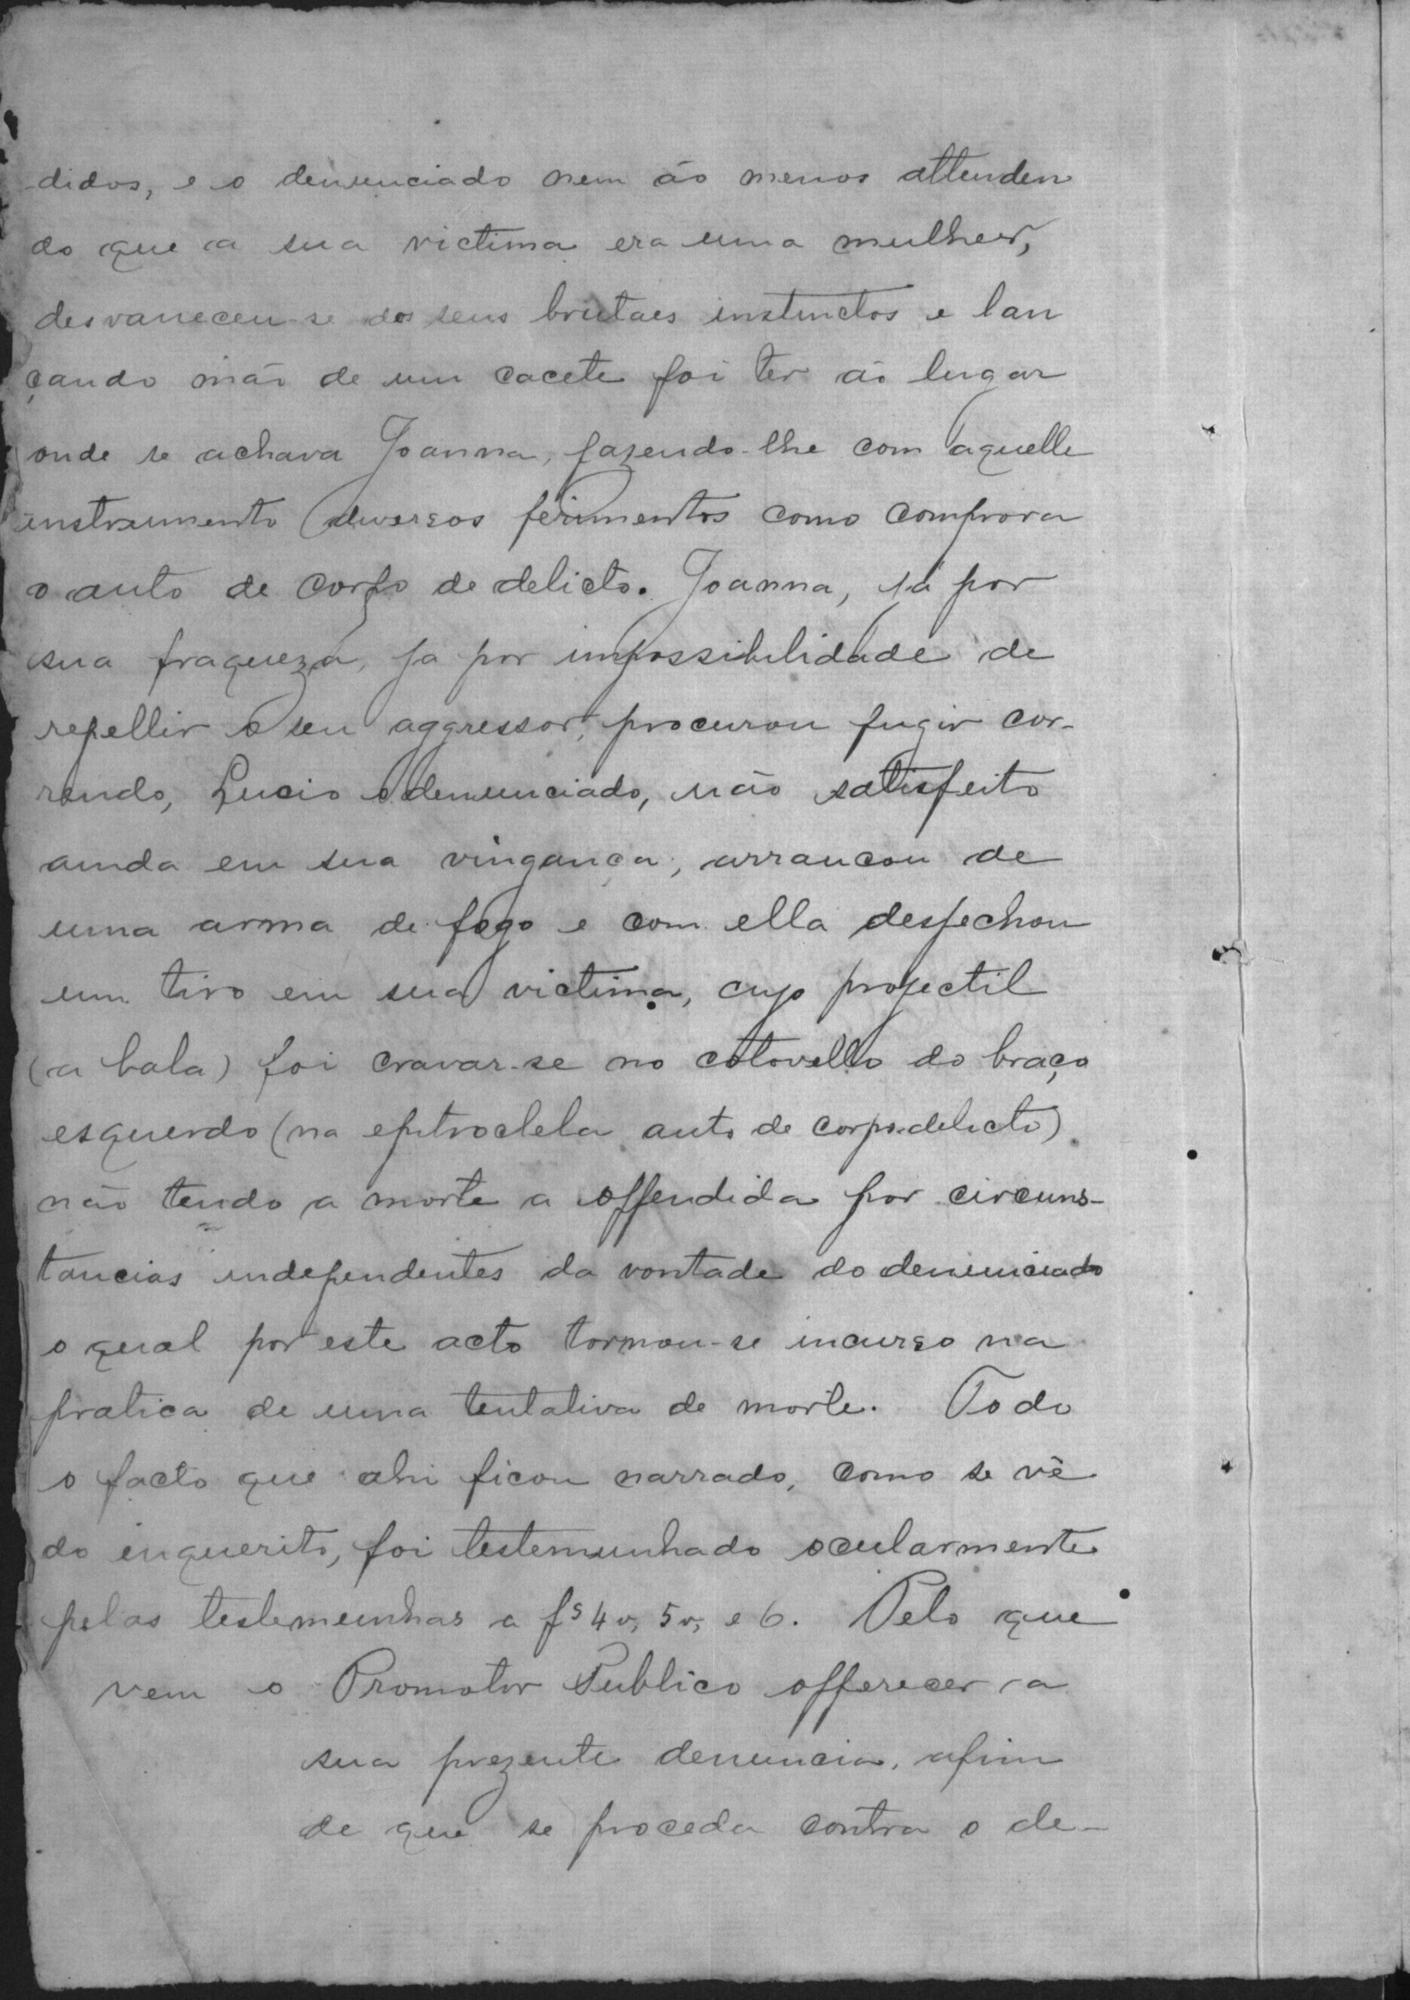 didos, e o denunciado nem áo menos attenden
do que a sua victima era uma mulher,
desvaneceu-se dos seus brutaes instinctos e lan
çando mão de um cacete foi ter áo lugar
onde se achava Joanna, fazendo-lhe com aquelle
instrumento diversos ferimentos como comprova
o auto de corpo de delicto. Joanna, já por
sua fraqueza, ja por impossibilidade de
repellir o seu aggressor, procurou fugir cor-
rendo, Lucio o denunciado, não satisfeito
ainda em sua vingança, arrancou de
uma arma de fogo e com ella despechou
um tiro em sua victima, cujo projectil
(a bala) foi cravar-se no cotovello do braço
esquerdo (na epitroclela auto de corpo delicto)
não tendo a morte a offendida por circuns-
tancias independentes da vontade do denunciado
o qual por este acto tornou-se incurso na
pratica de uma tentativa de morte. Todo
o facto que ahi ficou narrado, como se vê
do inquerito, foi testemunhado ocularmente
pelas testemunhas a fs 4v, 5v, e 6. Pelo que
vem o Promotor Publico offerecer a
sua prezente denuncia, afim
de que se proceda contra o de-